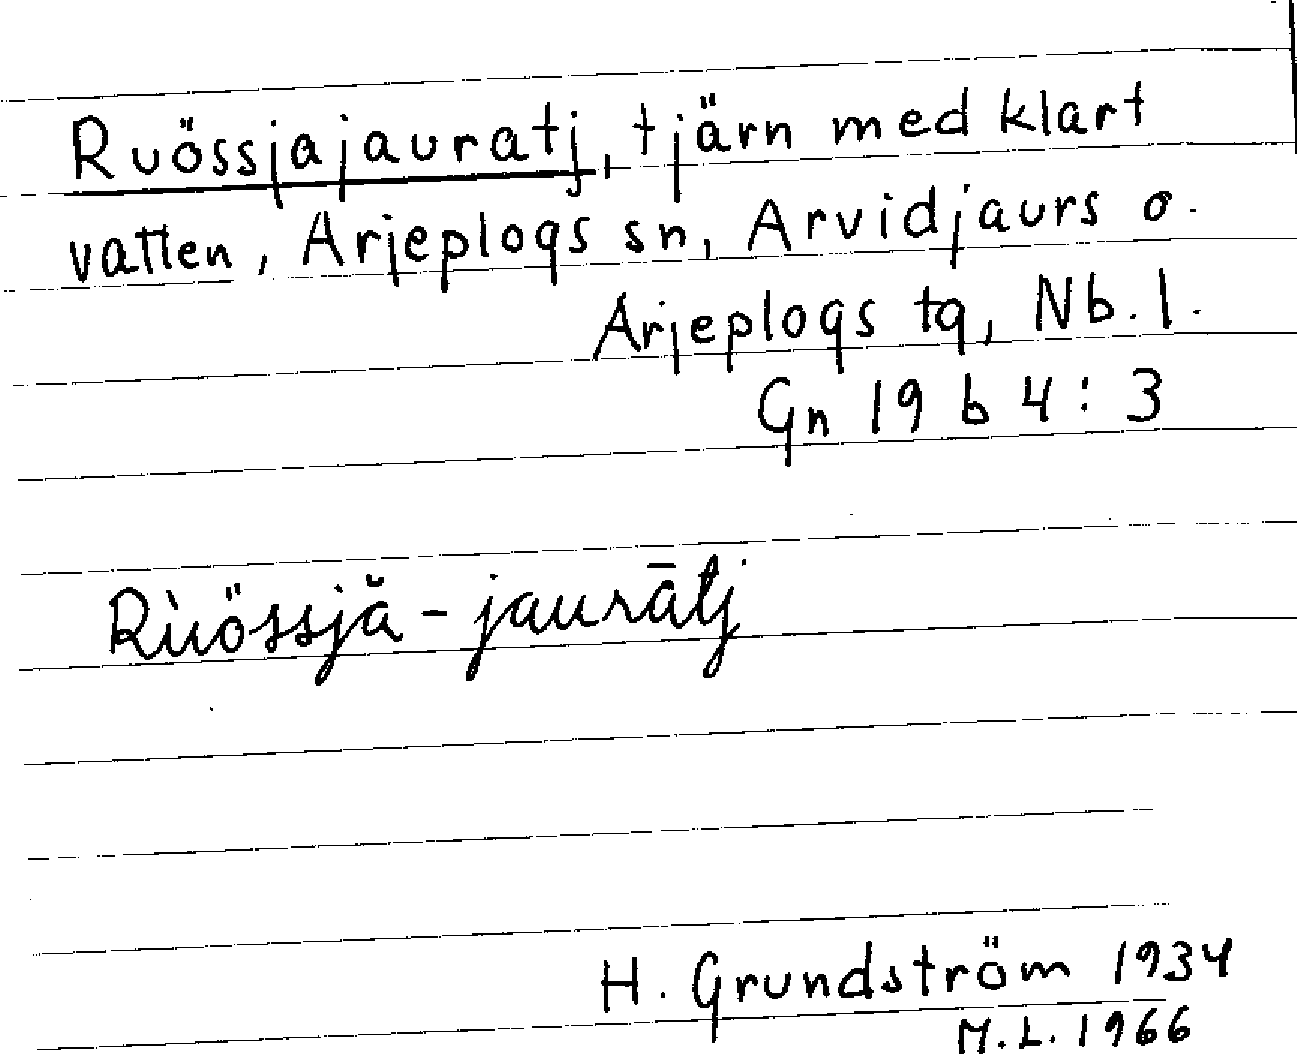 Ruössjajauratj, tjärn med klart
vatten, Arjeplogs sn, Arvidjaurs o.
Arjeplogs tg, Nb. l.
Gn 19 b 4:3
Rùössjă-jaurātj
H. Grundström 1934
M.L. 1966